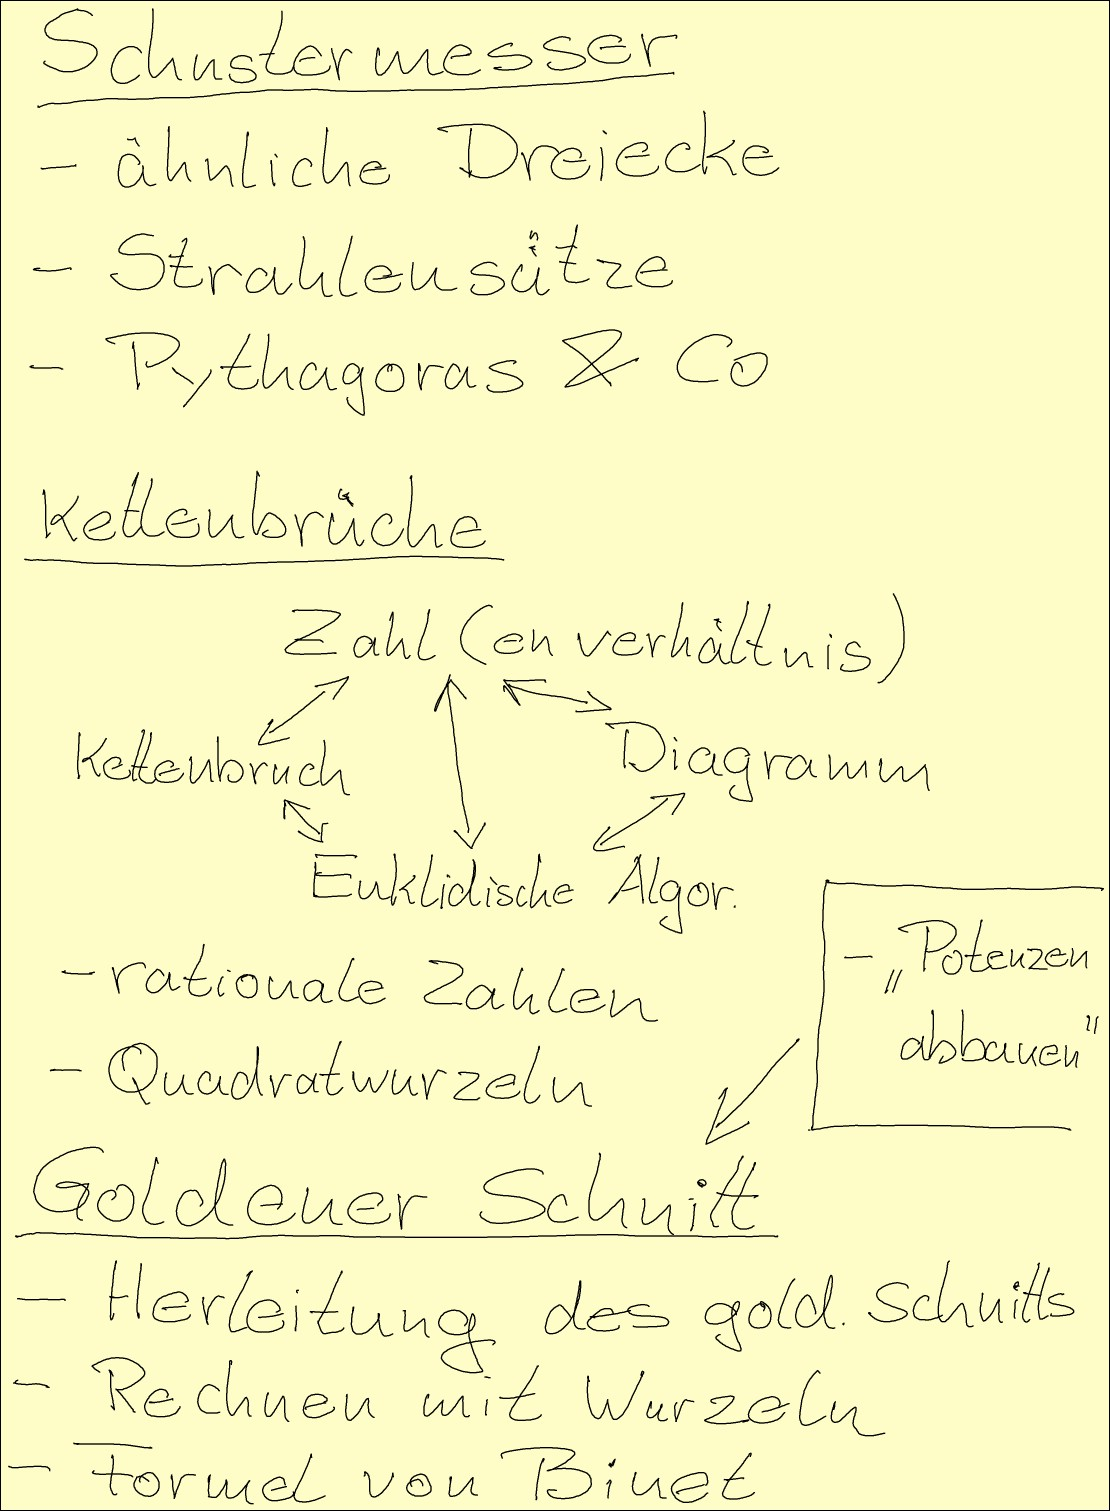 Schustermesser
- ähnliche Dreiecke
- Strahlensätze
- Pythagoras & Co
Kettenbrüche
Zahl(enverhältnis)
Kettenbruch
Diagramm
Euklidische Algor.
- rationale Zahlen
- Quadratwurzeln
- „Potenzen
abbauen"
Goldener Schnitt
- Herleitung des gold. Schnitts
- Rechnen mit Wurzeln
- Formel von Binet